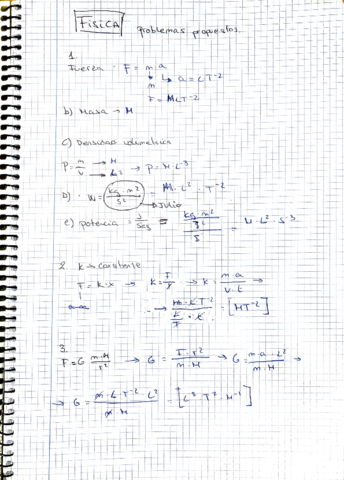 FISICA problemas propuestos.
1.
Fuerza - F = m·a
m ↳ a = LT⁻²
F = MLT⁻²
b) Masa → M
c) Densidad volumetrica
P = m/v → M / L³ → P = M L⁻³
D) W = kg·m²/s² = M·L²·T⁻²
→ Julio
e) potencia = J/seg = (kg·m²/s²)/s = M·L²·S⁻³
2. K → constante
F = K·x → K = F/x → K = m·a/v·t →
→ M·LT⁻²/(L/T · t) = [MT⁻²]
3.
F = G m·M/r² → G = F·r²/m·M → G = m·a·L²/m·M →
→ G = m·L·T⁻²·L²/m·M = [L³T²·M⁻¹]